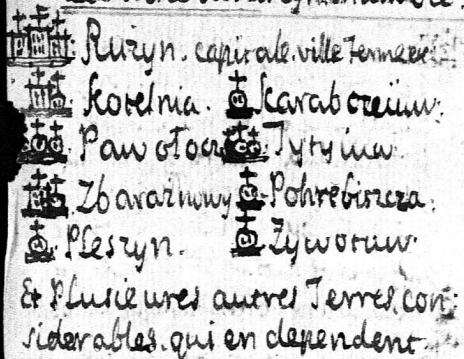 Ruzyn. capitale. ville fermeè:
Kotelnia. Karabczeiiuw:
Pawołocz Tytyiuw.
Zbarażnowy Pohrebiszcza:
Pleszyn. Żywotuw.
Et Plusieures autres Terres. con:
siderables. qui en dependent.